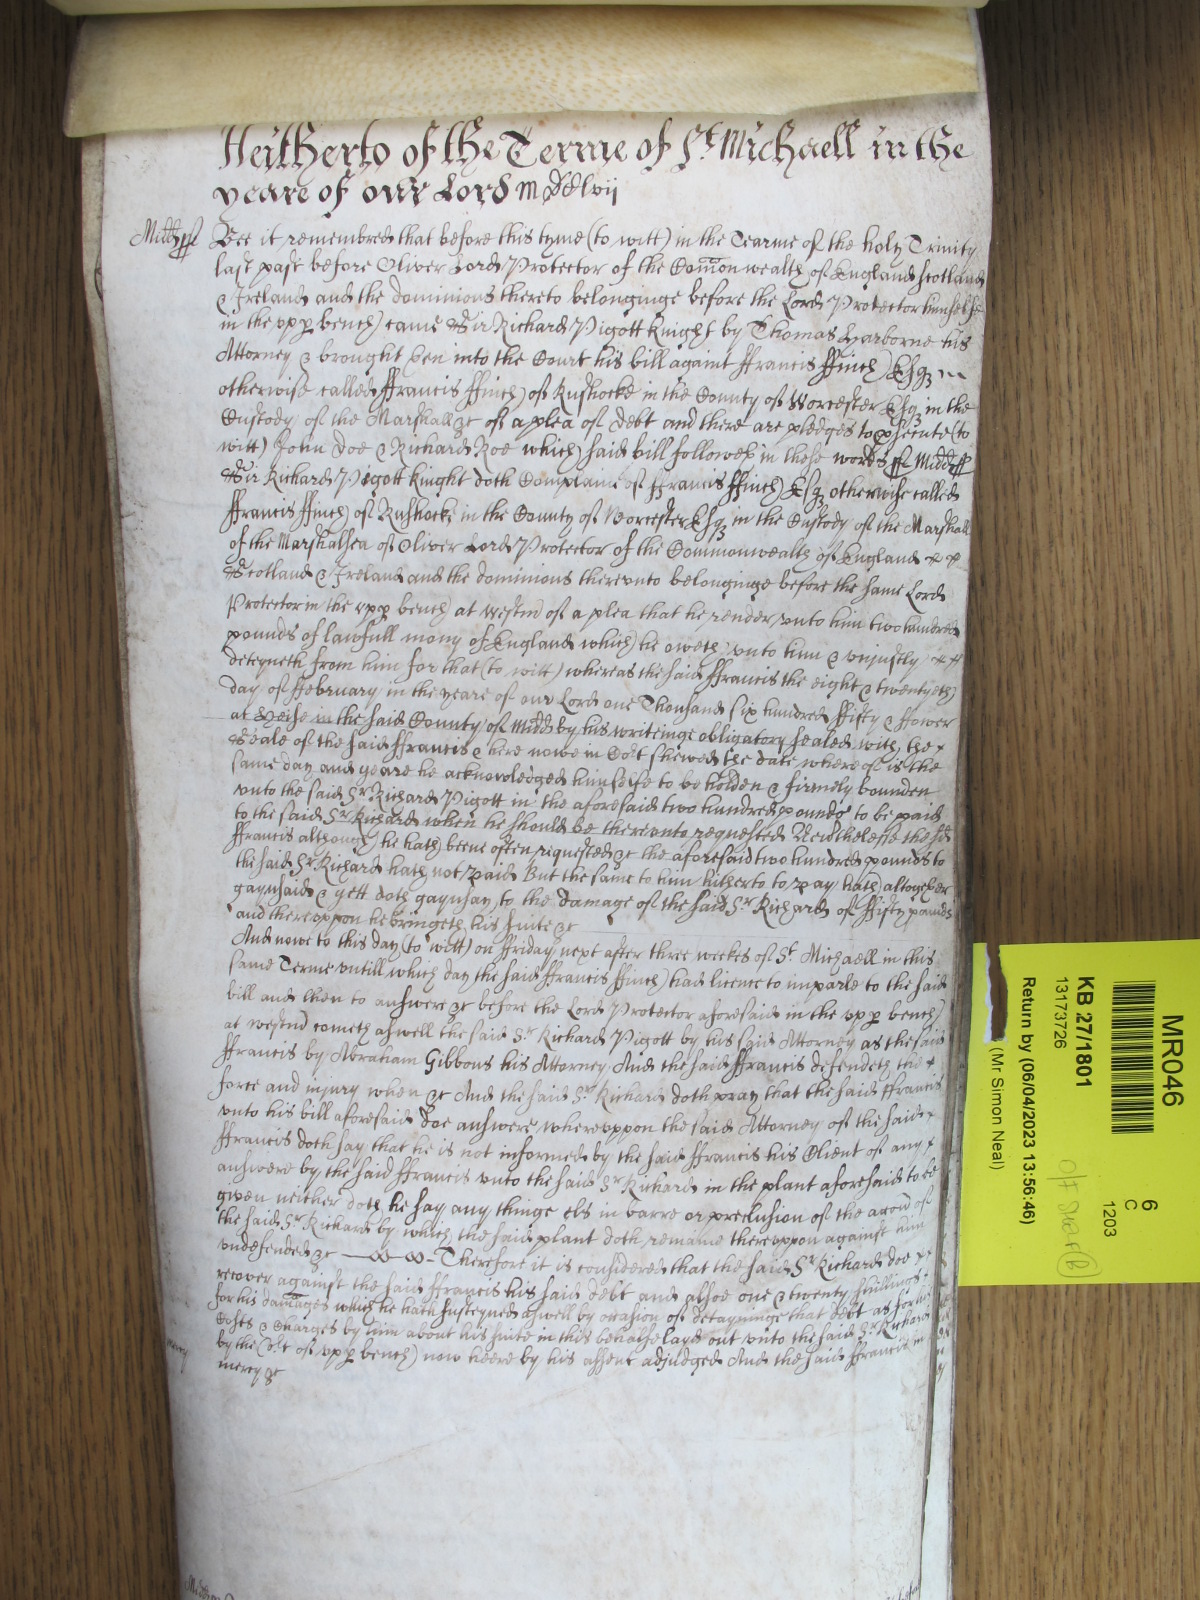 Heitherto of the Terme of St Michaell in the
yeare of our Lord MDCLvij
Midds ss Bee it remembred that before this tyme (to witt) in the Tearme of the holy Trinity
last past before Oliver Lord Protector of the Comon wealth of England Scotland
& Ireland and the dominions thereto belonginge before the Lord Protector himselfe
in the upp bench came Sir Richard Pigott Knight by Thomas Yarborne his
Attorney & brought then into the Court his bill againt ffrancis ffinch Esqz
otherwise called ffrancis ffinch of Rushocke in the County of Worcester Esqz in the
Custody of the Marshall &c of a plea of debt and there are pledges to psecute (to
witt) John Doe & Richard Roe which said bill followeth in these words ss Midd ss
Sir Richard Pigott Knight doth Complaine of ffrancis ffinch Esqz otherwise called
ffrancis ffinch of Rushocke in the County of Worcester Esqz in the Custody of the Marshall
of the Marshalsea of Oliver Lord Protector of the Commonwealth of England
Scotland & Ireland and the dominions thereunto belonginge before the same Lord
Protector in the upp bench at Westm of a plea that he render unto him two hundred
pounds of lawfull mony of England which he oweth unto him & unjustly
deteyneth from him for that (to witt) whereas the said ffrancis the eight & twentyeth
day of ffebruary in the yeare of our Lord one Thousand six hundred ffifty & ffower
at in the said County of Midd by his writeinge obligatory sealed with the
Seale of the said ffrancis & here nowe in Cort shewed the date whereof is the
same day and yeare he acknowledged himselfe to be holden & firmely bounden
unto the said Sr Richard Pigott in the aforesaid two hundred pounds to be paid
to the said Sr Richard when he should be thereunto requested Neverthelesse the sd
ffrancis although he hath beene often requested &c the aforesaid two hundred pounds to
the said Sr Richard hath not paid But the same to him hitherto to pay hath altogether
gaynsaid & yett doth gaynsay to the damage of the said Sr Richard of ffifty pounds
and thereuppon he bringeth his suite &c
And nowe to this day (to witt) on ffriday next after three weekes of St Michaell in this
same Terme untill which day the said ffrancis ffinch had licence to imparle to the said
bill and then to answere &c before the Lord Protector aforesaid in the upp bench
at Westm cometh aswell the said Sr Richard Pigott by his said Attorney as the said
ffrancis by Abraham Gibbons his Attorney And the said ffrancis defendeth the
force and injury when &c And the said Sr Richard doth pray that the said ffrancis
unto his bill aforesaid doe answere whereuppon the said Attorney of the said
ffrancis doth say that he is not informed by the said ffrancis his Client of any
answere by the said ffrancis unto the said Sr Richard in the plaint aforesaid to be
given neither doth he say any thinge els in barre or preclusion of the accon of
the said Sr Richard by which the said plaint doth remaine thereuppon against him
undefended &c Therefore it is considered that the said Sr Richard doe
recover against the said ffrancis his said debt and alsoe one & twenty shillings
for his damages which he hath susteyned aswell by occasion of detayninge that debt as for his
Costs & Charges by him about his suite in this behalfe layd out unto the said Sr Richard
by the Cort of upp bench now heere by his assent adjudged And the said ffrancis in
mercy &c
mercy
MR046
KB 27/1801
13173726
Return by (06/04/2023 13:56:46)
(Mr Simon Neal)
6
C
1203